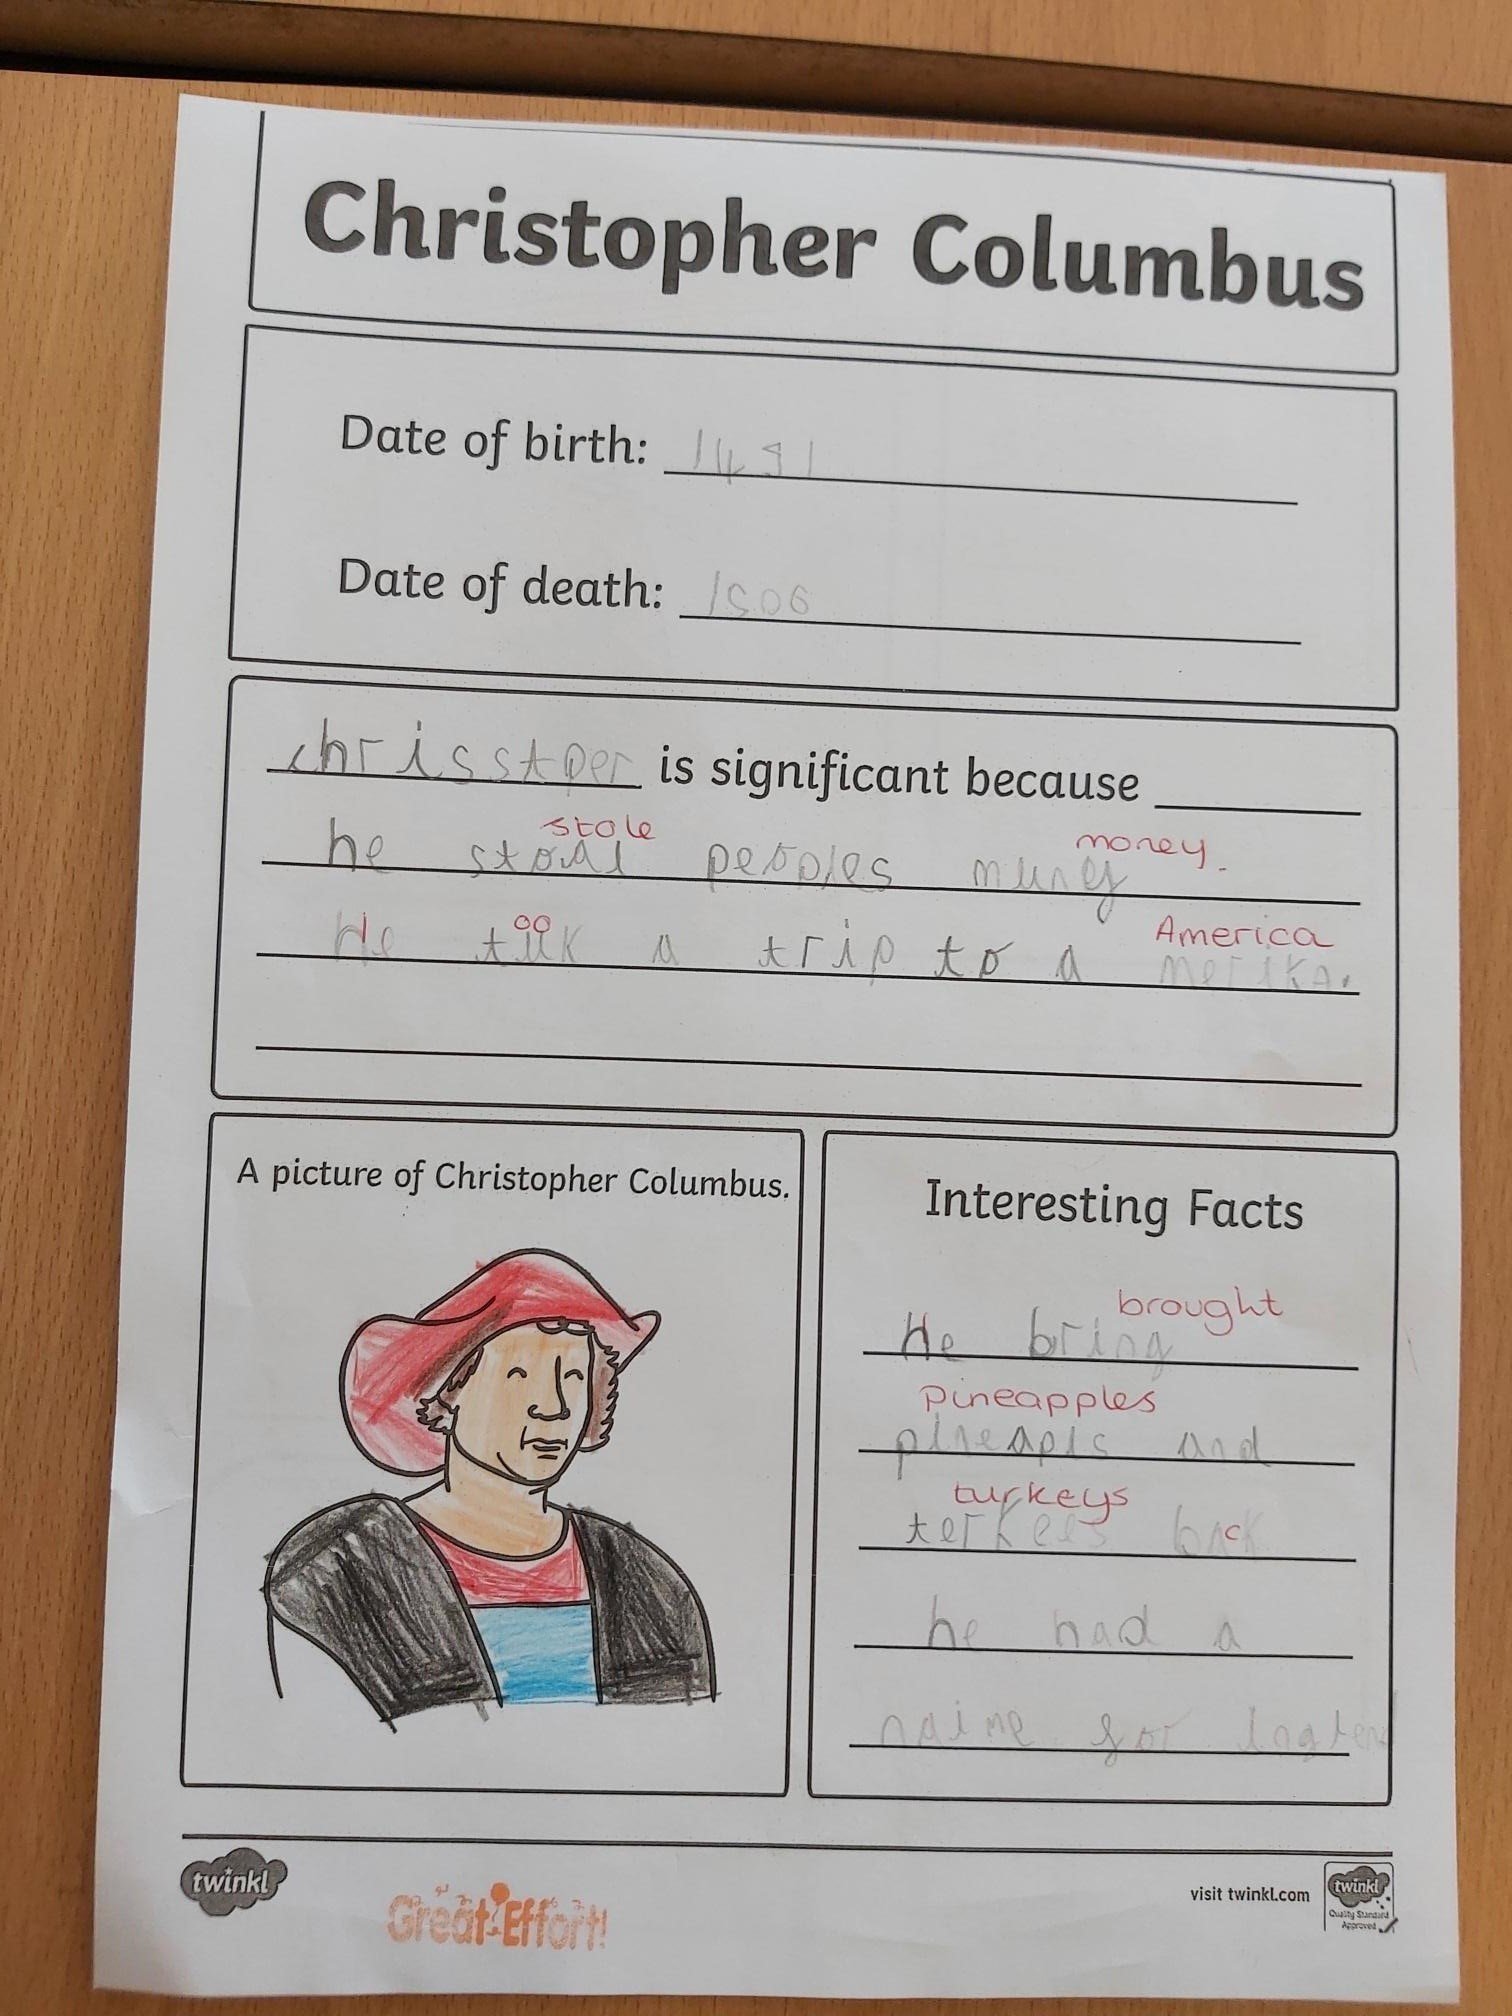 Christopher Columbus
Date of birth: 1451
Date of death: 1506
chrisstper is significant because
stole money.
he stoal peoples muney
oo America
He tuk a trip to a merika.
A picture of Christopher Columbus.
Interesting Facts
brought
He bring
pineapples
pineapls and
turkeys
terkees back
he had a
naime for
twinkl
Great Effort!
visit twinkl.com
twinkl
Quality Standard
Approved